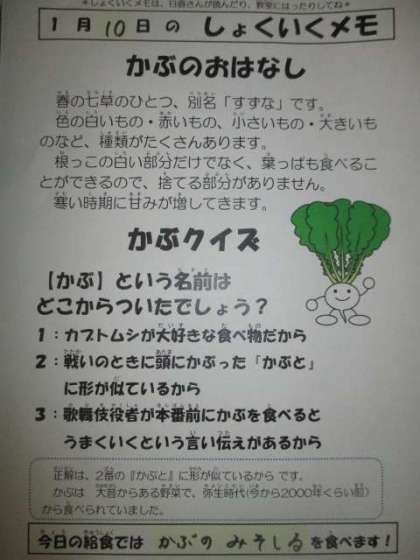 ＊しょくいくメモは、日直さんが読んだり、教室にはったりしてね＊
1月10日の しょくいくメモ
かぶのおはなし
春の七草のひとつ、別名「すずな」です。
色の白いもの・赤いもの、小さいもの・大きいも
のなど、種類がたくさんあります。
根っこの白い部分だけでなく、葉っぱも食べるこ
とができるので、捨てる部分がありません。
寒い時期に甘みが増してきます。
かぶクイズ
【かぶ】という名前は
どこからついたでしょう？
1：カブトムシが大好きな食べ物だから
2：戦いのときに頭にかぶった「かぶと」
に形が似ているから
3：歌舞伎役者が本番前にかぶを食べると
うまくいくという言い伝えがあるから
正解は、2番の『かぶと』に形が似ているから です。
かぶは 大昔からある野菜で、弥生時代(今から2000年くらい前)
から食べられていました。
今日の給食では かぶの みそしる を食べます！